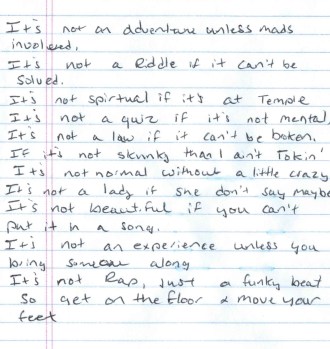 It's not an adventure unless mads
involved,
It's not a Riddle if it can't be
Solved.
It's not spirtual if it's at Temple
It's not a quiz if it's not mental,
It's not a law if it can't be broken.
If it's not skunky than I ain't Tokin'
It's not normal without a little crazy
It's not a lady if she don't say maybe
It's not beautiful if you can't
put it in a song.
It's not an experience unless you
bring someone along
It's not Rap, just a funky beat
So get on the floor & move your
feet